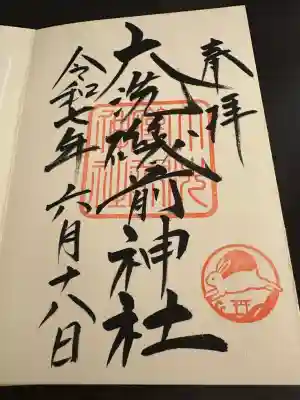 奉拝
大洗磯前神社
令和七年六月十八日